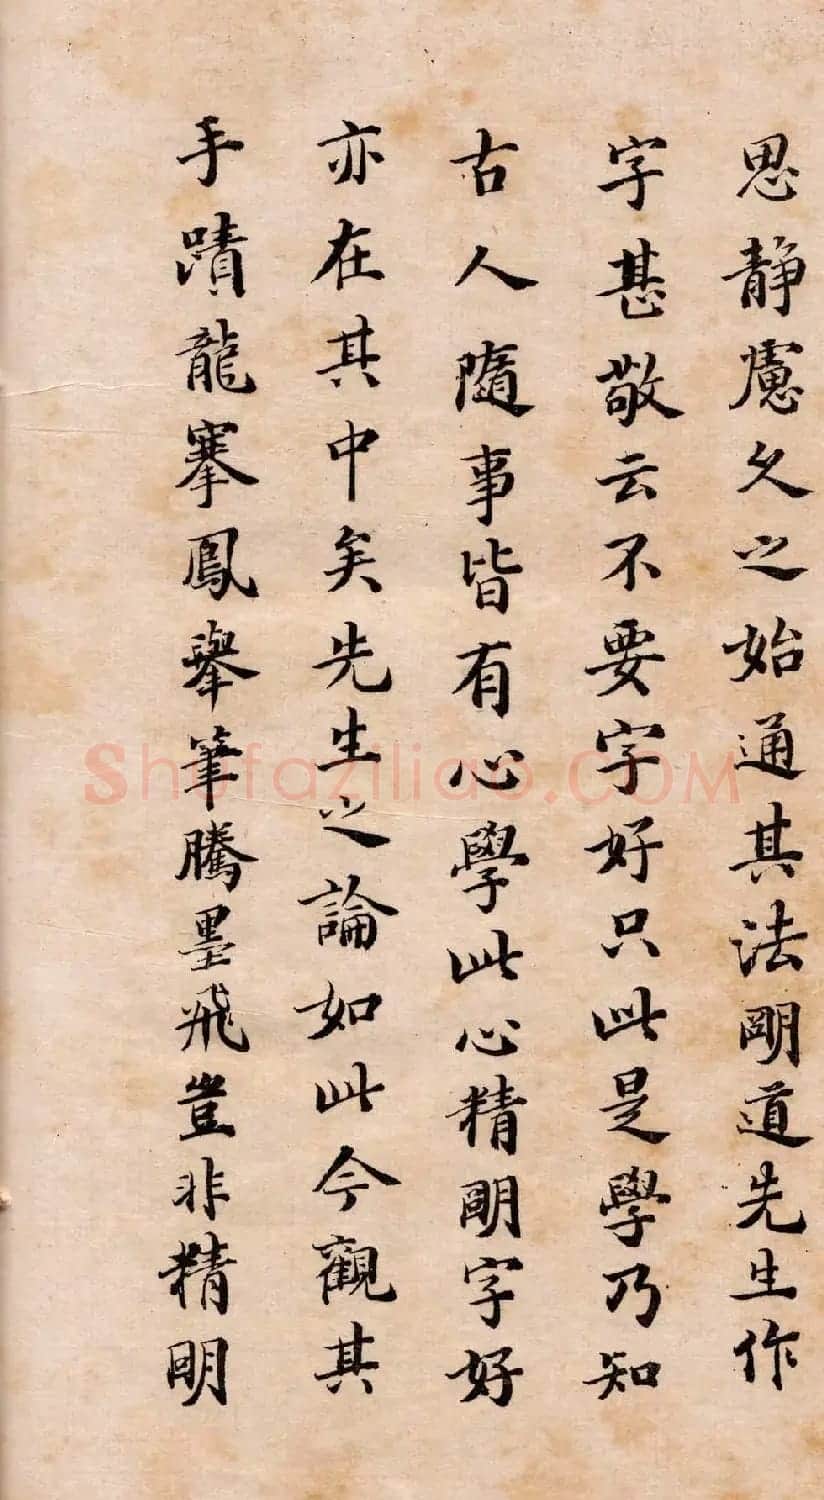 思静慮久之始通其法明道先生作
字甚敬云不要字好只此是學乃知
古人隨事皆有心學此心精明字好
亦在其中矣先生之論如此今觀其
手蹟龍搴鳳舉筆騰墨飛豈非精明
Shufaziliao.COM